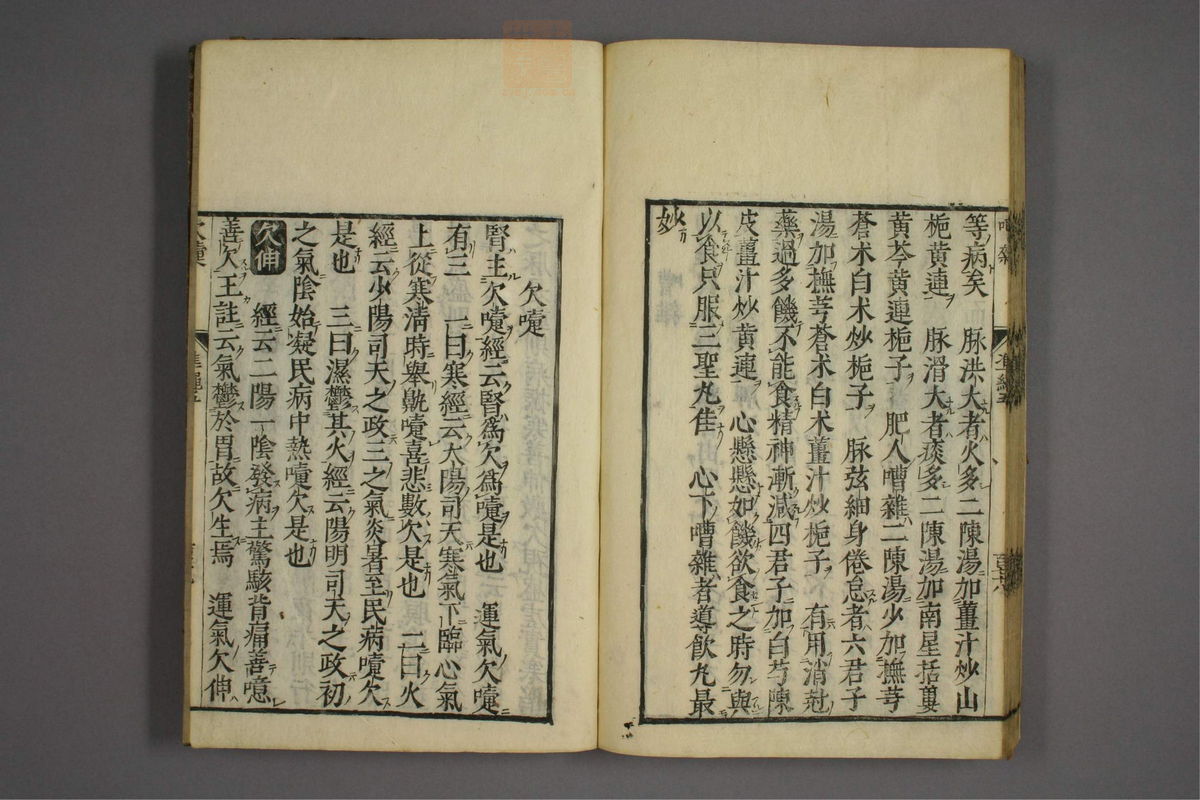 等病矣　脉洪大者火多二陳湯加薑汁炒山
梔黃連　脉滑大者痰多二陳湯加南星括蔞
黃芩黃連梔子　肥人嘈雜二陳湯少加撫芎
蒼朮白朮炒梔子　脉弦細身倦怠者六君子
湯加撫芎蒼朮白朮薑汁炒梔子　有用消尅
藥過多饑不能食精神漸減四君子加白芍陳
皮薑汁炒黃連　心懸懸如饑欲食之時勿與
以食只服三聖丸佳　心下嘈雜者導飮丸最
妙
欠嚏
腎主欠嚏經云腎爲欠爲嚏是也　運氣欠嚏
有三　一曰寒經云太陽司天寒氣下臨心氣
上從寒淸時舉鼽嚏喜悲數欠是也　二曰火
經云少陽司天之政三之氣炎暑至民病嚏欠
是也　三曰濕鬱其火經云陽明司天之政初
之氣陰始凝民病中熱嚏欠是也
欠伸　經云二陽一陰發病主驚駭背痛善噫
善欠王註云氣鬱於胃故欠生焉　運氣欠伸
欠嚏